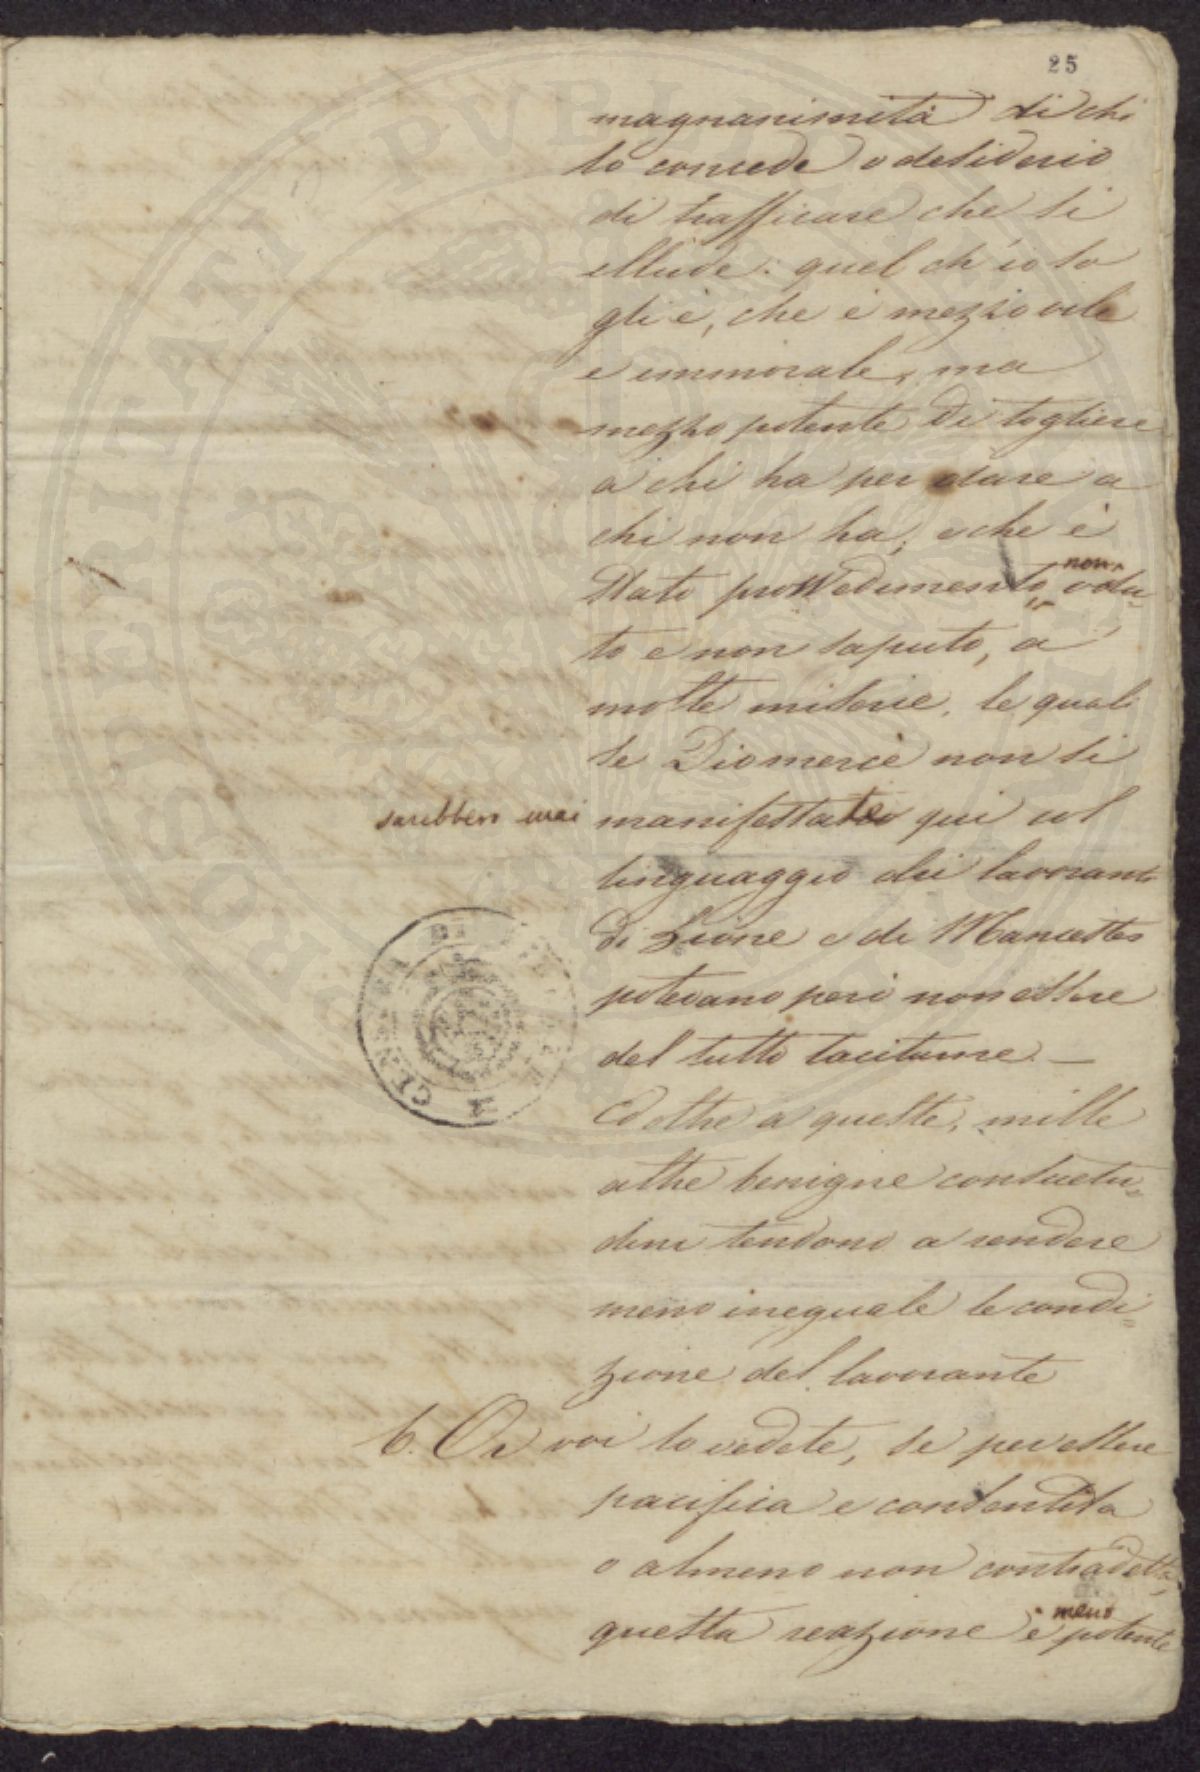 25
magnanimità di chi
lo concede o desiderio
di trafficare che si
illude: quel ch'io so
gli è, che è mezzo vile
e immorale, ma
mezzo potente di togliere
a chi ha per dare a
chi non ha, e che è
stato provvedimento, non volu-
to e non saputo, a
molte miserie, le quali
se Dio mercè non si
sarebbero mai manifestate qui col
linguaggio dei lavoranti
di Lione e di Mancester
potevano però non essere
del tutto taciturne. —
Ed oltre a queste, mille
altre benigne consuetu-
dini tendono a rendere
meno ineguale la condi-
zione del lavorante
6. Or voi lo vedete, se per essere
pacifica e consentita
o almeno non contradetta,
questa reazione è meno potente
PROSPERITATI PVBLICAE